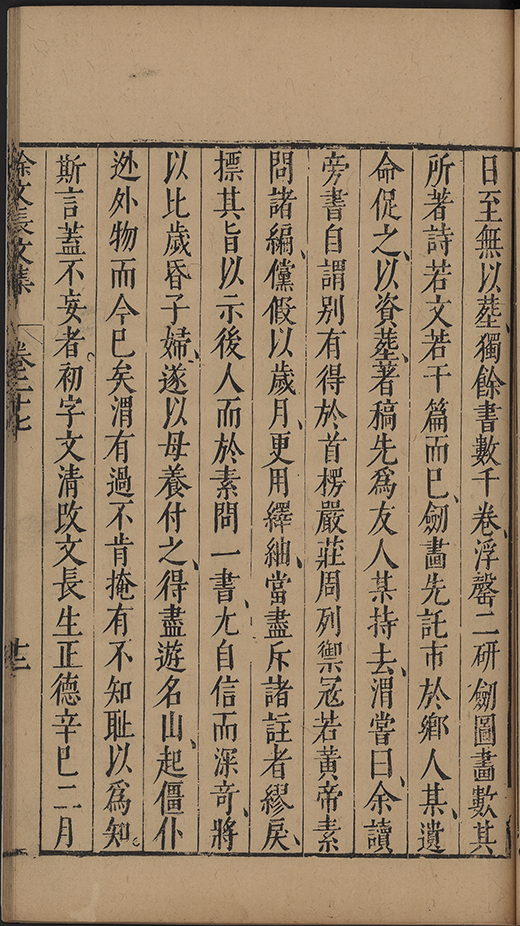 日至無以塟、獨餘書數千卷、浮罄二研劍圖畫數其
所著詩若文若干篇而已、劒畫先託市於鄉人某、遺
命促之、以資塟、著稿先爲友人某持去、渭嘗曰、余讀
旁書自謂别有得於首楞嚴莊周列禦冦若黃帝素
問諸編、儻假以歲月、更用繹紬、當盡斥諸註者繆戾、
摽其旨以示後人而於素問一書、尤自信而深竒、將
以比歲昏子婦、遂以母養付之、得盡遊名山、起僵仆
逊外物而今已矣渭有過不肯掩有不知耻以爲知、
斯言葢不妄者。初字文清攺文長生正德辛巳二月
徐文長文集
卷二十七
十二